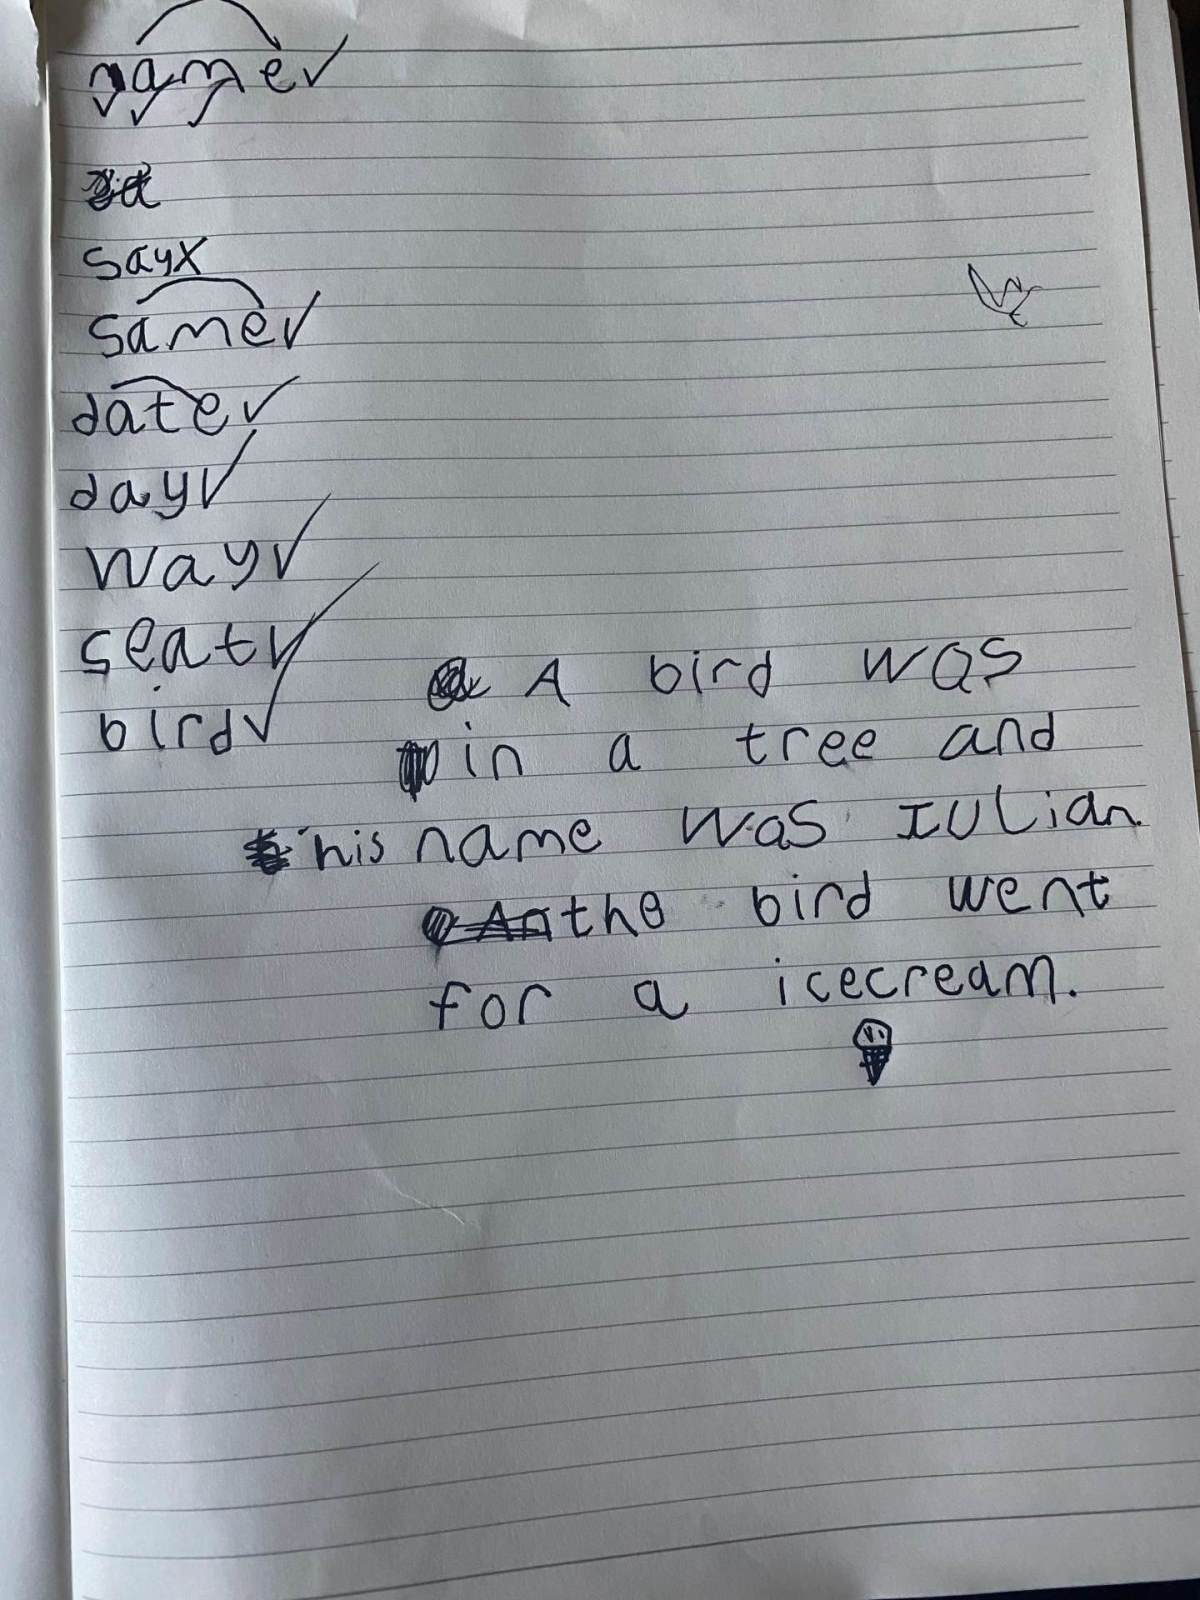 name
say
same
date
day
way
seat
bird
A bird was
in a tree and
his name was IULian.
the bird went
for a icecream.